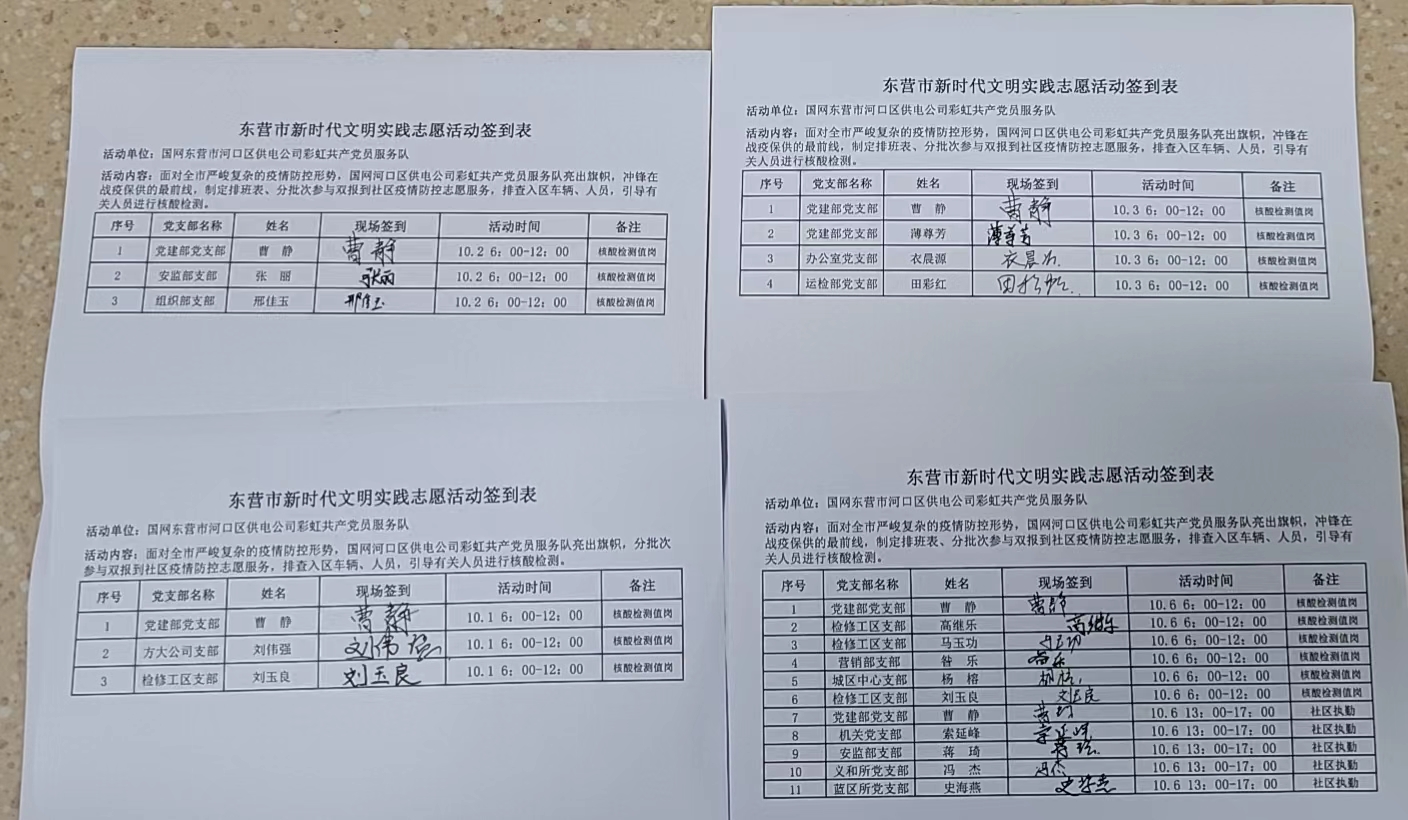 东营市新时代文明实践志愿活动签到表
活动单位：国网东营市河口区供电公司彩虹共产党员服务队
活动内容：面对全市严峻复杂的疫情防控形势，国网河口区供电公司彩虹共产党员服务队亮出旗帜，冲锋在
战疫保供的最前线，制定排班表、分批次参与双报到社区疫情防控志愿服务，排查入区车辆、人员，引导有
关人员进行核酸检测。
序号 党支部名称 姓名 现场签到 活动时间 备注
1 党建部党支部 曹 静 曹静 10.2 6：00-12：00 核酸检测值岗
2 安监部支部 张 丽 张丽 10.2 6：00-12：00 核酸检测值岗
3 组织部支部 邢佳玉 邢佳玉 10.2 6：00-12：00 核酸检测值岗
东营市新时代文明实践志愿活动签到表
活动单位：国网东营市河口区供电公司彩虹共产党员服务队
活动内容：面对全市严峻复杂的疫情防控形势，国网河口区供电公司彩虹共产党员服务队亮出旗帜，冲锋在
战疫保供的最前线，制定排班表、分批次参与双报到社区疫情防控志愿服务，排查入区车辆、人员，引导有
关人员进行核酸检测。
序号 党支部名称 姓名 现场签到 活动时间 备注
1 党建部党支部 曹 静 曹静 10.3 6：00-12：00 核酸检测值岗
2 党建部党支部 薄尊芳 薄尊芳 10.3 6：00-12：00 核酸检测值岗
3 办公室党支部 衣晨源 衣晨源 10.3 6：00-12：00 核酸检测值岗
4 运检部党支部 田彩红 田彩红 10.3 6：00-12：00 核酸检测值岗
东营市新时代文明实践志愿活动签到表
活动单位：国网东营市河口区供电公司彩虹共产党员服务队
活动内容：面对全市严峻复杂的疫情防控形势，国网河口区供电公司彩虹共产党员服务队亮出旗帜，分批次
参与双报到社区疫情防控志愿服务，排查入区车辆、人员，引导有关人员进行核酸检测。
序号 党支部名称 姓名 现场签到 活动时间 备注
1 党建部党支部 曹 静 曹静 10.1 6：00-12：00 核酸检测值岗
2 方大公司支部 刘伟强 刘伟强 10.1 6：00-12：00 核酸检测值岗
3 检修工区支部 刘玉良 刘玉良 10.1 6：00-12：00 核酸检测值岗
东营市新时代文明实践志愿活动签到表
活动单位：国网东营市河口区供电公司彩虹共产党员服务队
活动内容：面对全市严峻复杂的疫情防控形势，国网河口区供电公司彩虹共产党员服务队亮出旗帜，冲锋在
战疫保供的最前线，制定排班表、分批次参与双报到社区疫情防控志愿服务，排查入区车辆、人员，引导有
关人员进行核酸检测。
序号 党支部名称 姓名 现场签到 活动时间 备注
1 党建部党支部 曹 静 曹静 10.6 6：00-12：00 核酸检测值岗
2 检修工区支部 高继乐 高继乐 10.6 6：00-12：00 核酸检测值岗
3 检修工区支部 马玉功 马玉功 10.6 6：00-12：00 核酸检测值岗
4 营销部支部 昝 乐 昝乐 10.6 6：00-12：00 核酸检测值岗
5 城区中心支部 杨 榕 杨榕 10.6 6：00-12：00 核酸检测值岗
6 检修工区支部 刘玉良 刘玉良 10.6 6：00-12：00 核酸检测值岗
7 党建部党支部 曹 静 曹静 10.6 13：00-17：00 社区执勤
8 机关党支部 索延峰 索延峰 10.6 13：00-17：00 社区执勤
9 安监部支部 蒋 琦 10.6 13：00-17：00 社区执勤
10 义和所党支部 冯 杰 冯杰 10.6 13：00-17：00 社区执勤
11 蓝区所党支部 史海燕 史海燕 10.6 13：00-17：00 社区执勤